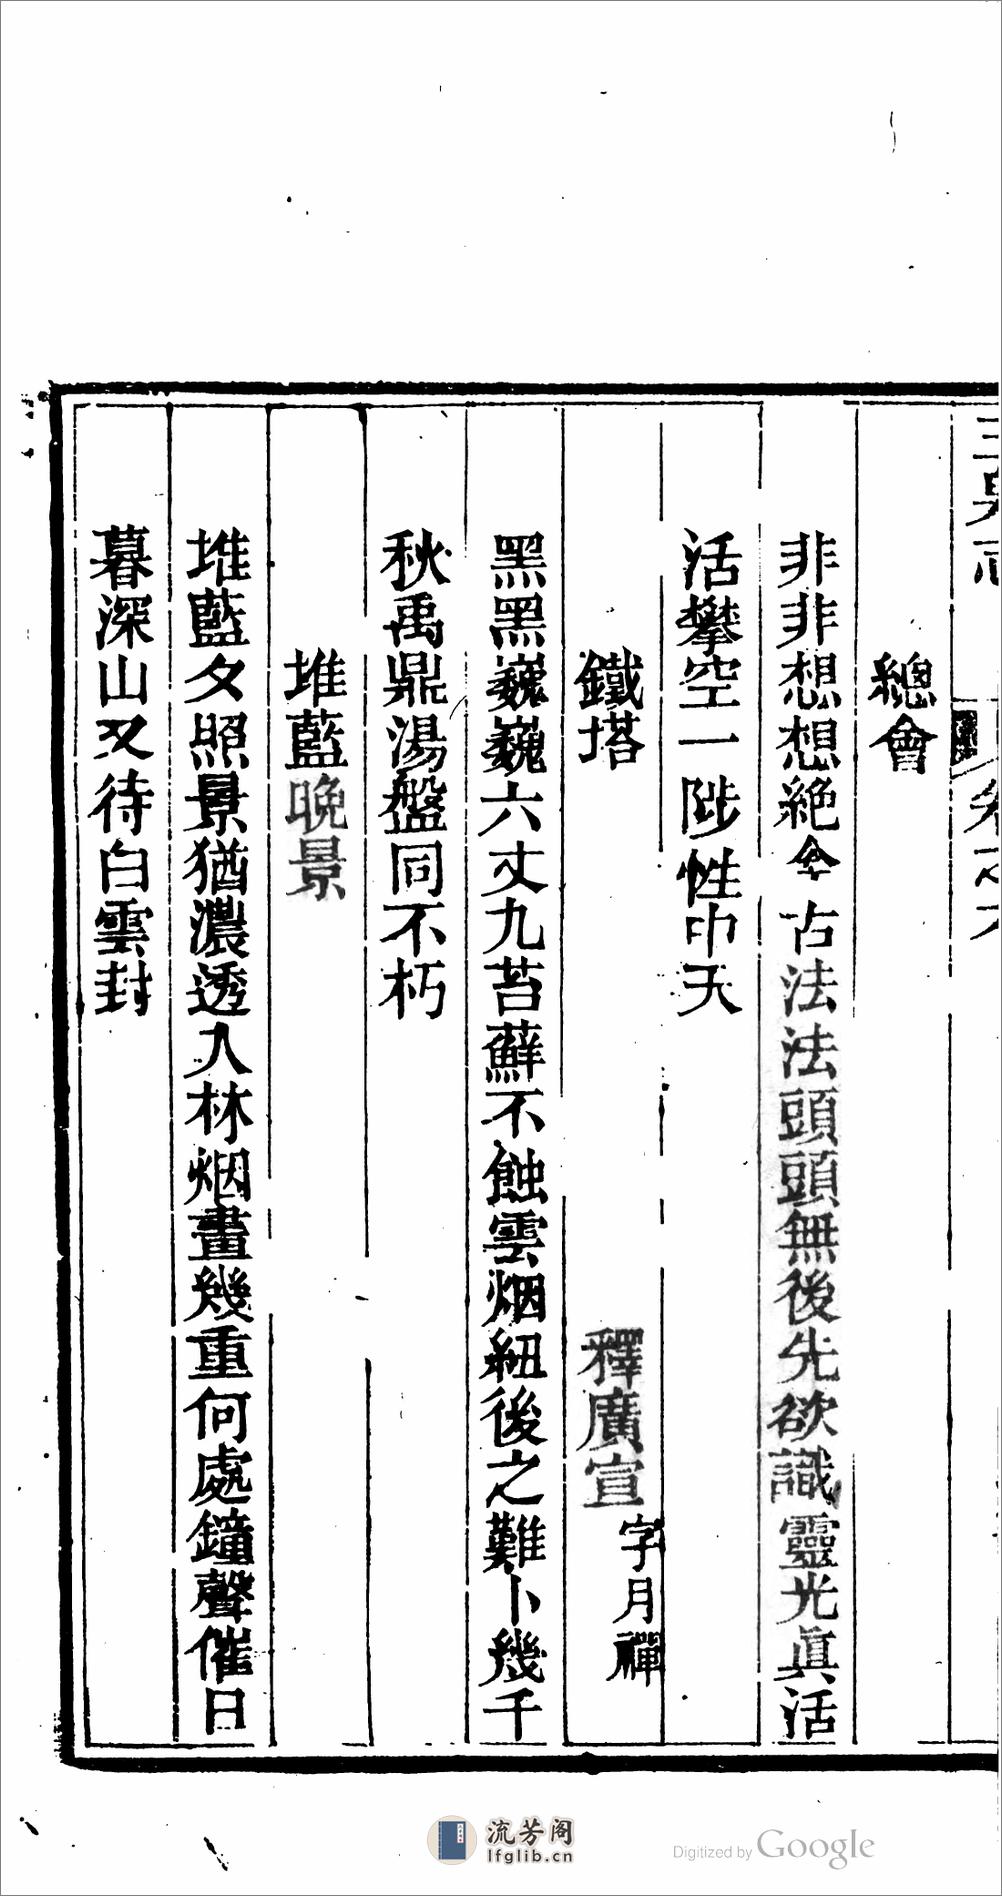 總會
非非想想絶今古法法頭頭無後先欲識靈光眞活
活攀空一陟性中天
鐵塔 釋廣宣字月禪
黑黑巍巍六丈九苔蘚不蝕雲烟紐後之難卜幾千
秋禹鼎湯盤同不朽
堆藍晚景
堆藍夕照景猶濃透入林烟畫幾重何處鐘聲催日
暮深山又待白雲封
流芳阁
lfglib.cn
Digitized by Google